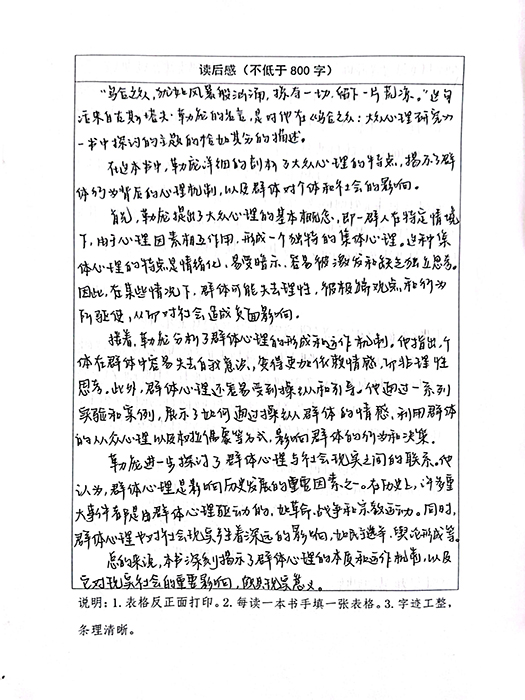 读后感（不低于800字）
“乌合之众，就如风暴般汹涌，掠夺一切，留下一片荒凉。”这句
话来自古斯塔夫·勒庞的名言，是对他在《乌合之众：大众心理研究》
一书中探讨的主题的恰如其分的描述。
在这本书中，勒庞详细的剖析了大众心理的特点，揭示了群
体行为背后的心理机制，以及群体对个体和社会的影响。
首先，勒庞提出了大众心理的基本概念，即一群人在特定情境
下，由于心理因素相互作用，形成一个独特的集体心理。这种集
体心理的特点是情绪化，易受暗示，容易被激发和缺乏独立思考。
因此，在某些情况下，群体可能失去理性，被极端观点和行为
所驱使，从而对社会造成负面影响。
接着，勒庞分析了群体心理的形成和运作机制。他指出，个
体在群体中容易失去自我意识，变得更加依赖情感，而非理性
思考。此外，群体心理还容易受到操纵和引导。他通过一系列
实验和案例，展示了如何通过操纵群体的情感，利用群体
的从众心理以及权威偶像等方式，影响群体的行为和决策。
勒庞进一步探讨了群体心理与社会现实之间的联系。他
认为，群体心理是影响历史发展的重要因素之一。在历史上，许多重
大事件都是由群体心理驱动的，如革命、战争和宗教运动。同时，
群体心理也对社会现实产生着深远的影响，如民主选举、舆论形成等。
总的来说，本书深刻揭示了群体心理的本质和运作机制，以及
它对现实社会的重要影响，极具现实意义。
说明：1.表格反正面打印。2.每读一本书手填一张表格。3.字迹工整，
条理清晰。